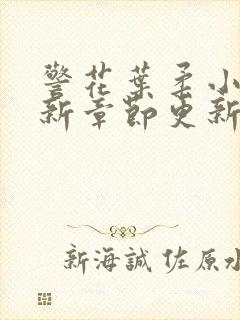 警花葉柔小
新章節更新
新海誠 佐原水